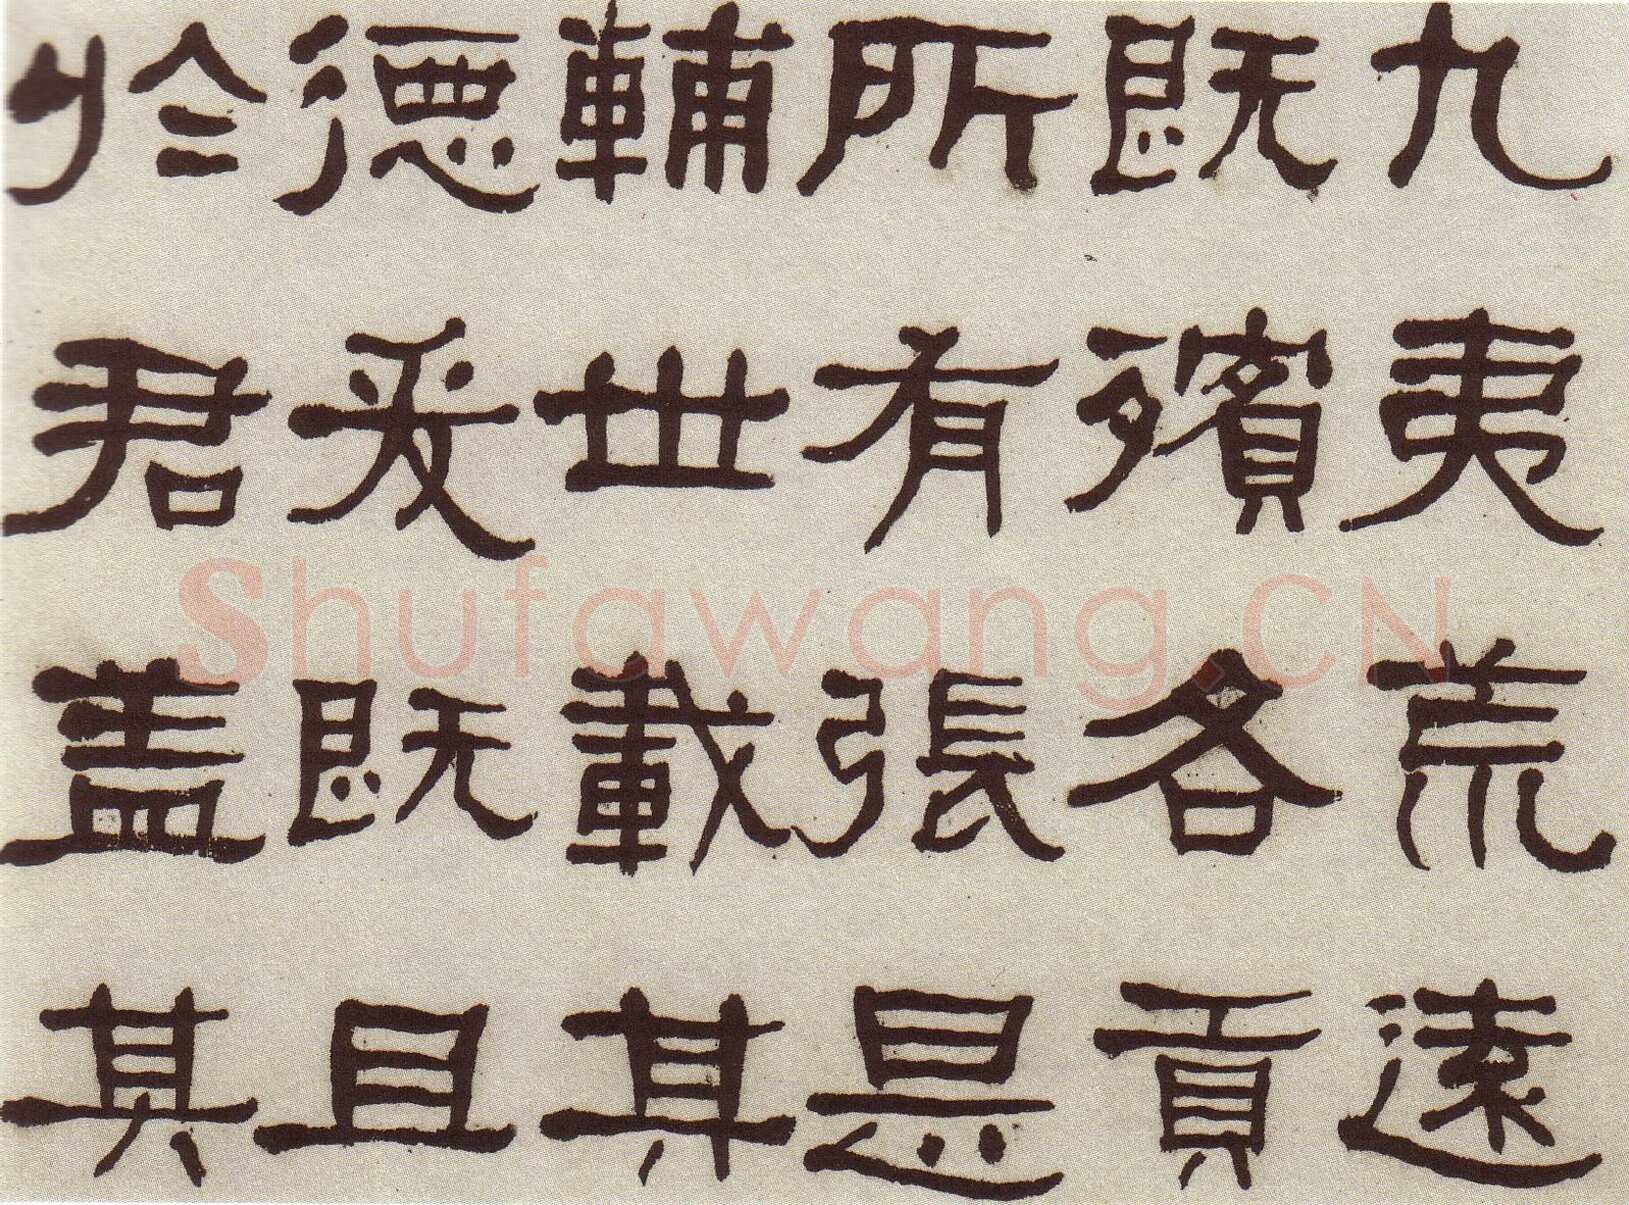 九夷荒遠
既殯各貢
所有張是
輔世載其
德爰既且
於君盖其
Shufawang.CN